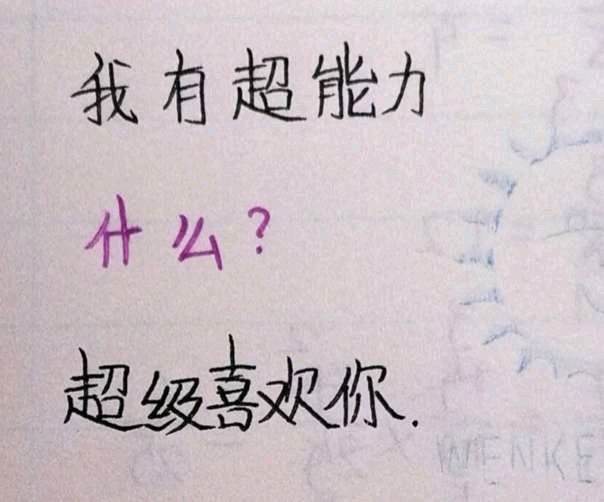 我有超能力
什么?
超级喜欢你.